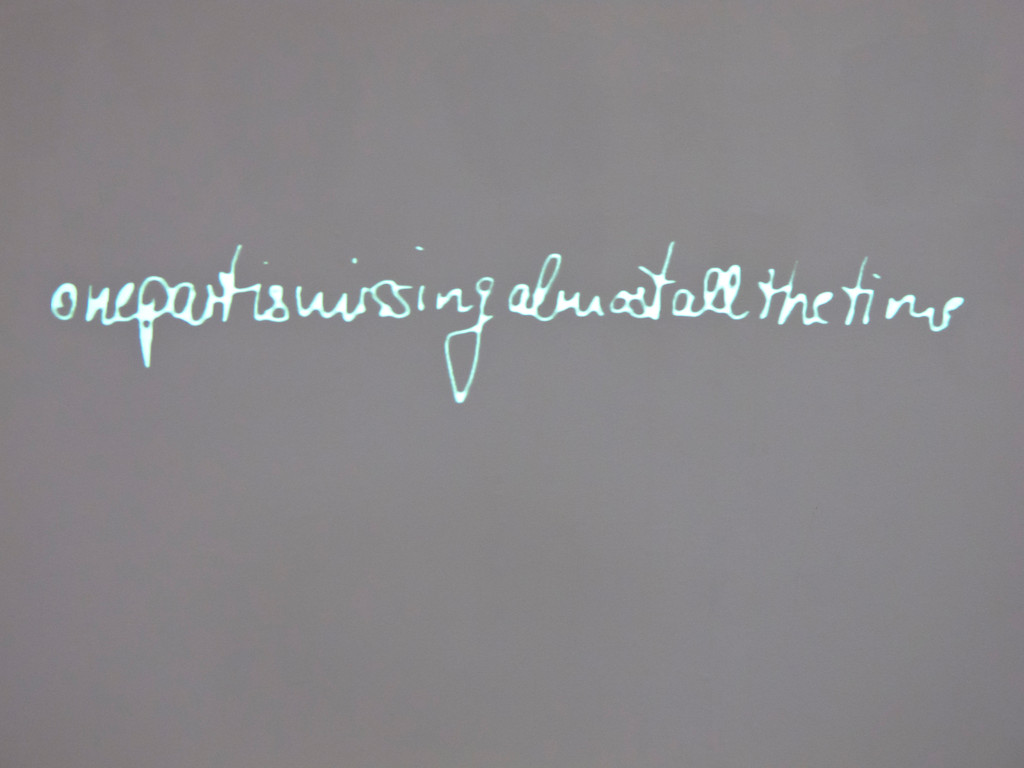 one part is missing almost all the time